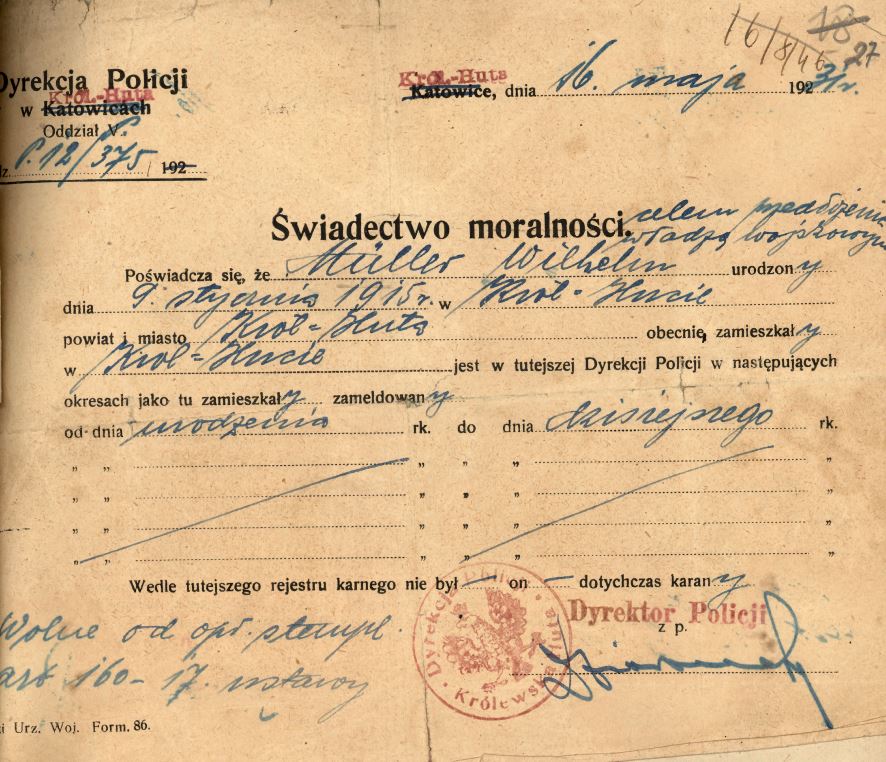 16/8/46 18 27
Dyrekcja Policji
Król.-Huta
w Katowicach
Oddział V.
dz. P. 12/375 / 192
Król.-Huta
Katowice, dnia 16. maja 1931 r.
Świadectwo moralności. celem przedłożenia
władzą wojskowym
Poświadcza się, że Müller Wilhelm urodzony
dnia 9. stycznia 1915 r. w Król-Hucie
powiat i miasto Król-Huta obecnie, zamieszkały
w Król-Hucie jest w tutejszej Dyrekcji Policji w następujących
okresach jako tu zamieszkały zameldowany
od dnia urodzenia rk. do dnia dzisiejszego rk.
„ „ „ „ „ „
„ „ „ „ „ „
„ „ „ „ „ „
„ „ „ „ „ „
Wedle tutejszego rejestru karnego nie był — on — dotychczas karany
Dyrekcja Policji Królewska Huta
Dyrektor Policji
z p.
Wolne od opł. stempl.
art 160-17. ustawy
i Urz. Woj. Form. 86.